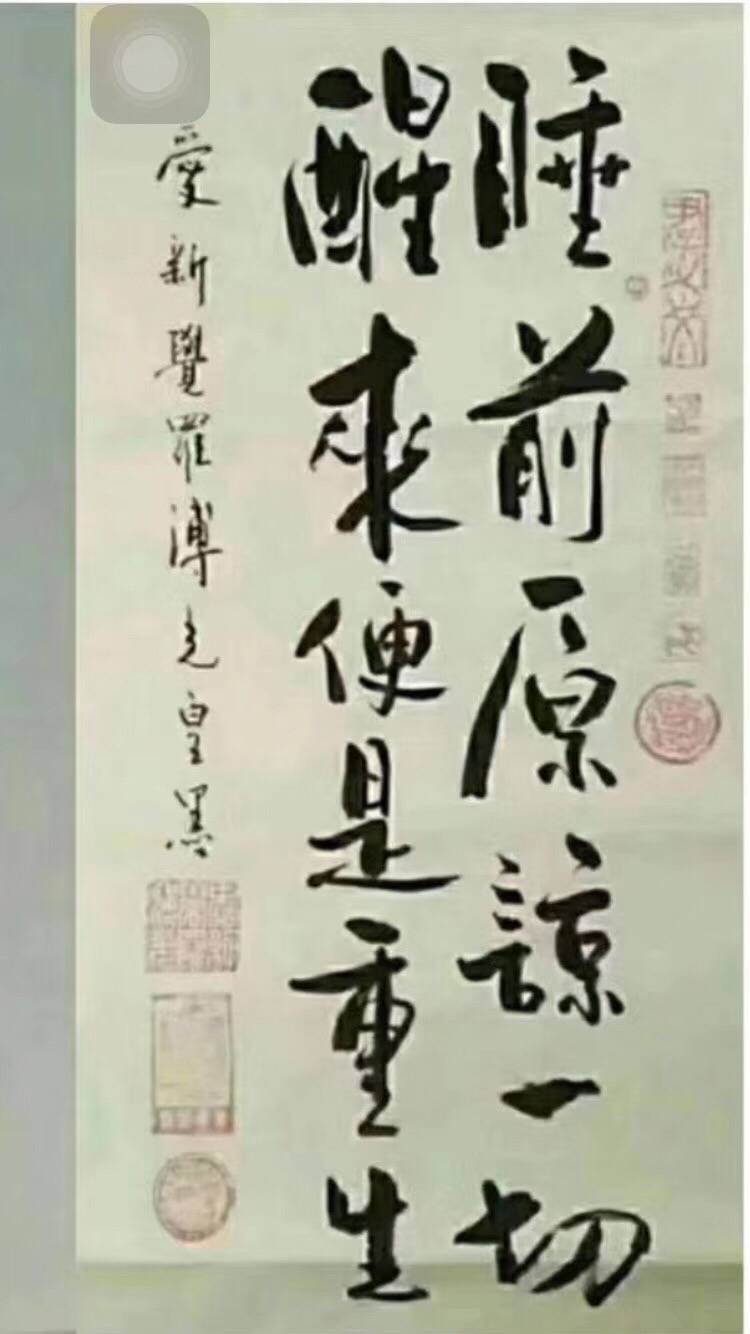 睡前原諒一切
醒來便是重生
愛新覺羅溥 皇墨